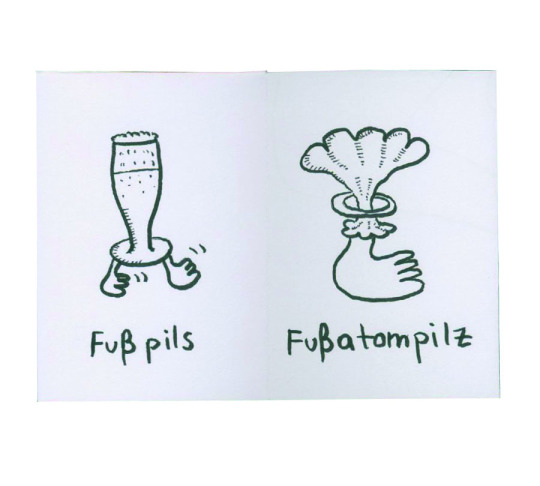 Fußpils
Fußatompilz